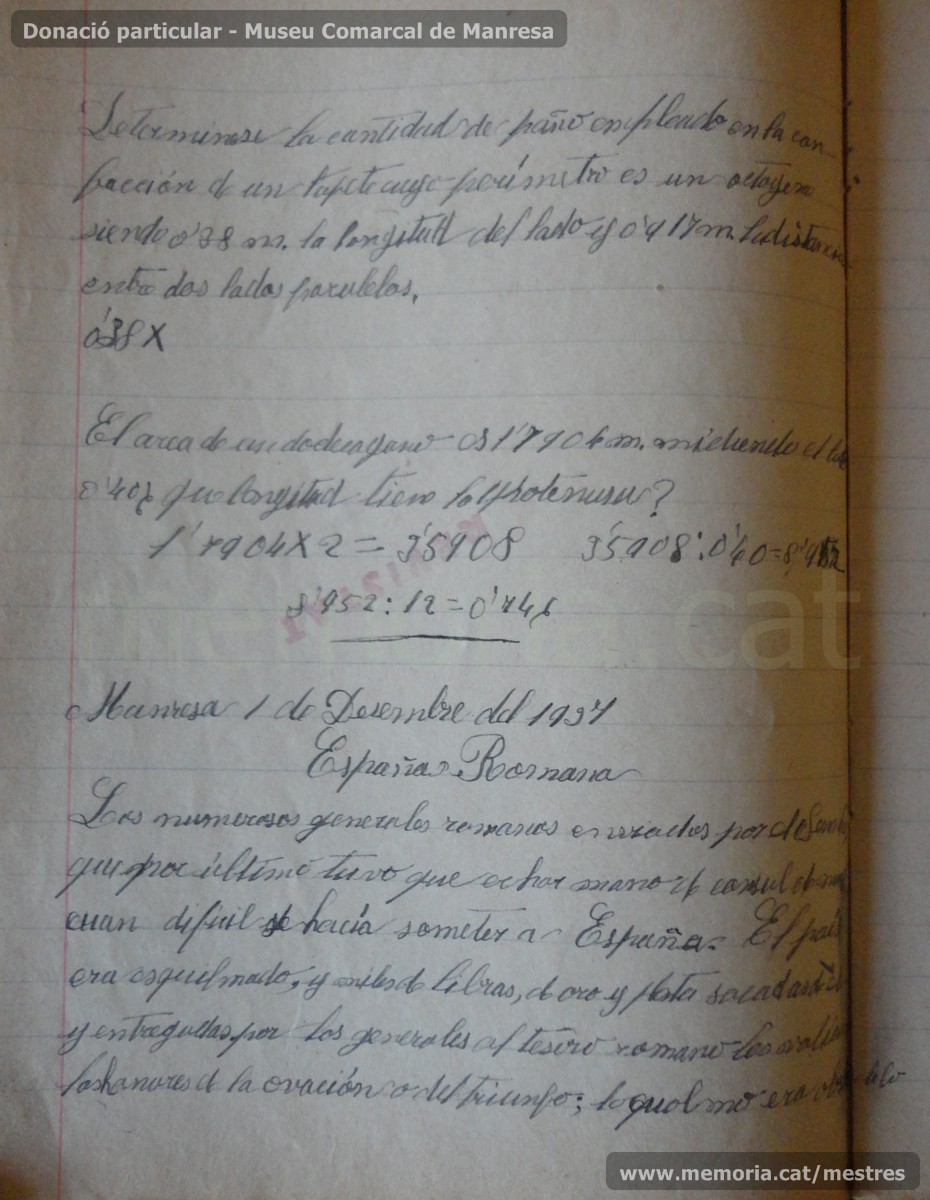 Donació particular - Museu Comarcal de Manresa
Determinese la cantidad de paño empleado en la con-
facción d un tapete cuyo perímetro es un octogono
siendo 0'38 m. la longitud del lado y 0'917 m la distancia
entre dos lados paralelos.
0'38 X
El area de un dodecagano es 1'7904 m. midiendo el lado
0'40 que longitud tiene la ipotenusa?
1'7904 X 2 = 3'5908 3'5908 : 0'40 = 8'952
REVISTAT
8'952 : 12 = 0'746
memoria.cat
Manresa 1 de Desembre del 1937
España Romana
Los numerosos generales romanos enviados por el Senado,
que por último tuvo que echar mano d consul
cuan dificil se hacía someter a España. El país
era esquilmado, y miles d libras, d oro y plata sacadas de él
y entregadas por los generales al tesoro romano les valían
los honores d la ovación o del triunfo; lo qual no era
www.memoria.cat/mestres